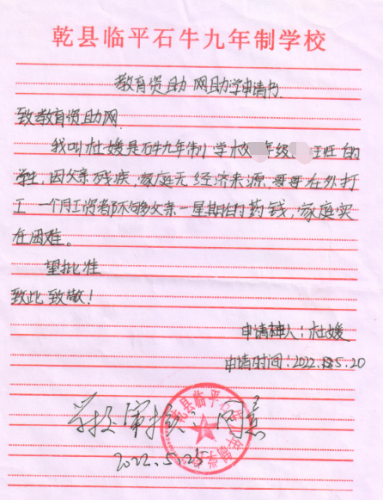 乾县临平石牛九年制学校
教育资助网助学申请书
致教育资助网
我叫杜媛是石牛九年制学校 年级 班的
学生,因父亲残疾,家庭无经济来源,妈妈在外打
工一个月工资都不够父亲一星期的药钱,家庭实
在困难。
望批准
致此致敬!
申请人:杜媛
申请时间:2022.5.20
学校审核 同意
2022.5.25
乾县临平石牛九年制学校